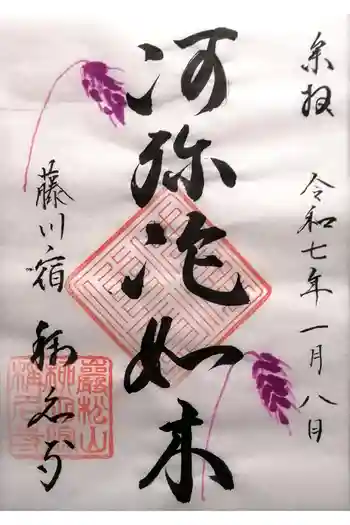 奉拝 令和七年一月八日
阿弥陀如来
藤川宿 称名寺
巖松山
称名寺